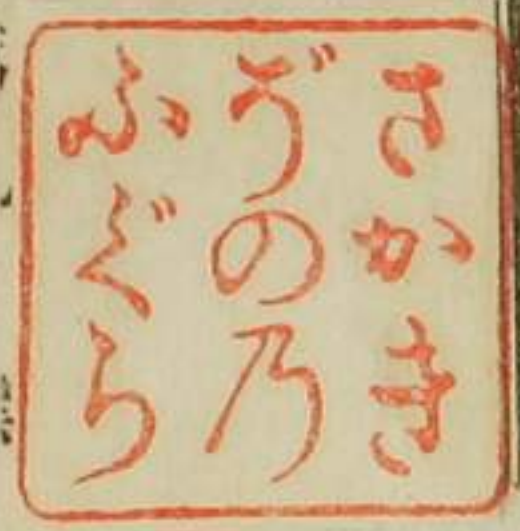 さかき
ぞの乃
ふぐら